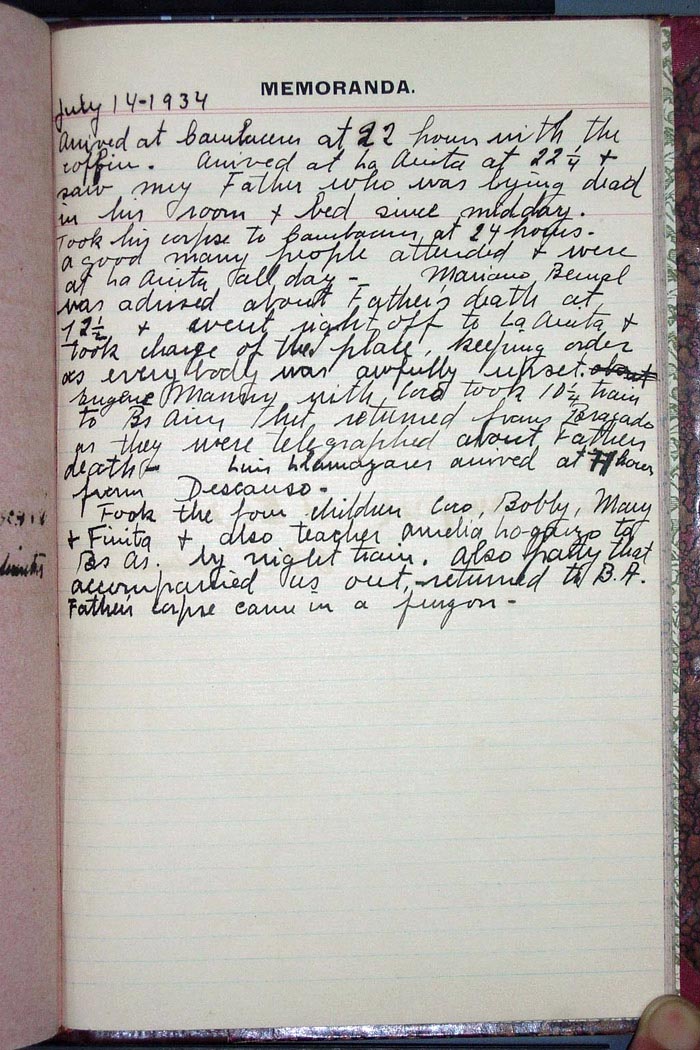 MEMORANDA.
July 14-1934
Arrived at Cambaceres at 22 hours with the
coffin. Arrived at La Anita at 22 1/4 +
saw my Father who was lying dead
in his room + bed since midday.
Took his corpse to Cambaceres at 24 hours.
a good many people attended + were
at La Anita all day - Mariano Bernal
was advised about Father's death at
12 1/2 + went right off to La Anita +
took charge of the place, keeping order
as everybody was awfully upset. about
Eugene Manny with Coco took 10 1/2 train
to Bs Aires but returned from
as they were telegraphed about Fathers
death - Luis Llamazares arrived at hours
from Descanso -
Took the four children Coco, Bobby, Mary
+ Finita + also teacher Amelia to
Bs As. by night train. Also party that
accompanied us out, returned to B.A.
Father's corpse came in a furgon -